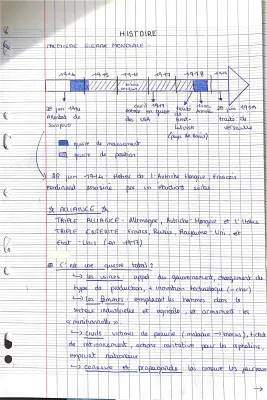 HISTOIRE
PREMIERE GUERRE MONDIALE
1914 1915 1916 1917 1918 1919
28 juin 1914
Attentat de
Sarajevo
avril 1917
entrée en guerre
des USA
traité
de
Brest-
Litovsk
28 juin 1919
traité de
Versailles
guerre de mouvement
guerre de position
28 juin 1914 : de l'Autriche Hongrie François
Ferdinand assassiné par un étudiant serbe
ALLIANCE
TRIPLE ALLIANCE : Allemagne, Autriche Hongrie et l'Italie
TRIPLE ENTENTE : France, Russie, Royaume Uni et
Etat-Unis (en 1917)
C'est une guerre totale :
Les usines : appel du gouvernement, changement de
type de production, + innovation technologique (char)
Les femmes : remplacent les hommes dans le
secteur industriel et agricole, et
Civils : victimes de pénurie (maladie → ), ticket
de rationnement, actions caritative pour les orphelins,
emprunt nationaux
Censure et propagande :